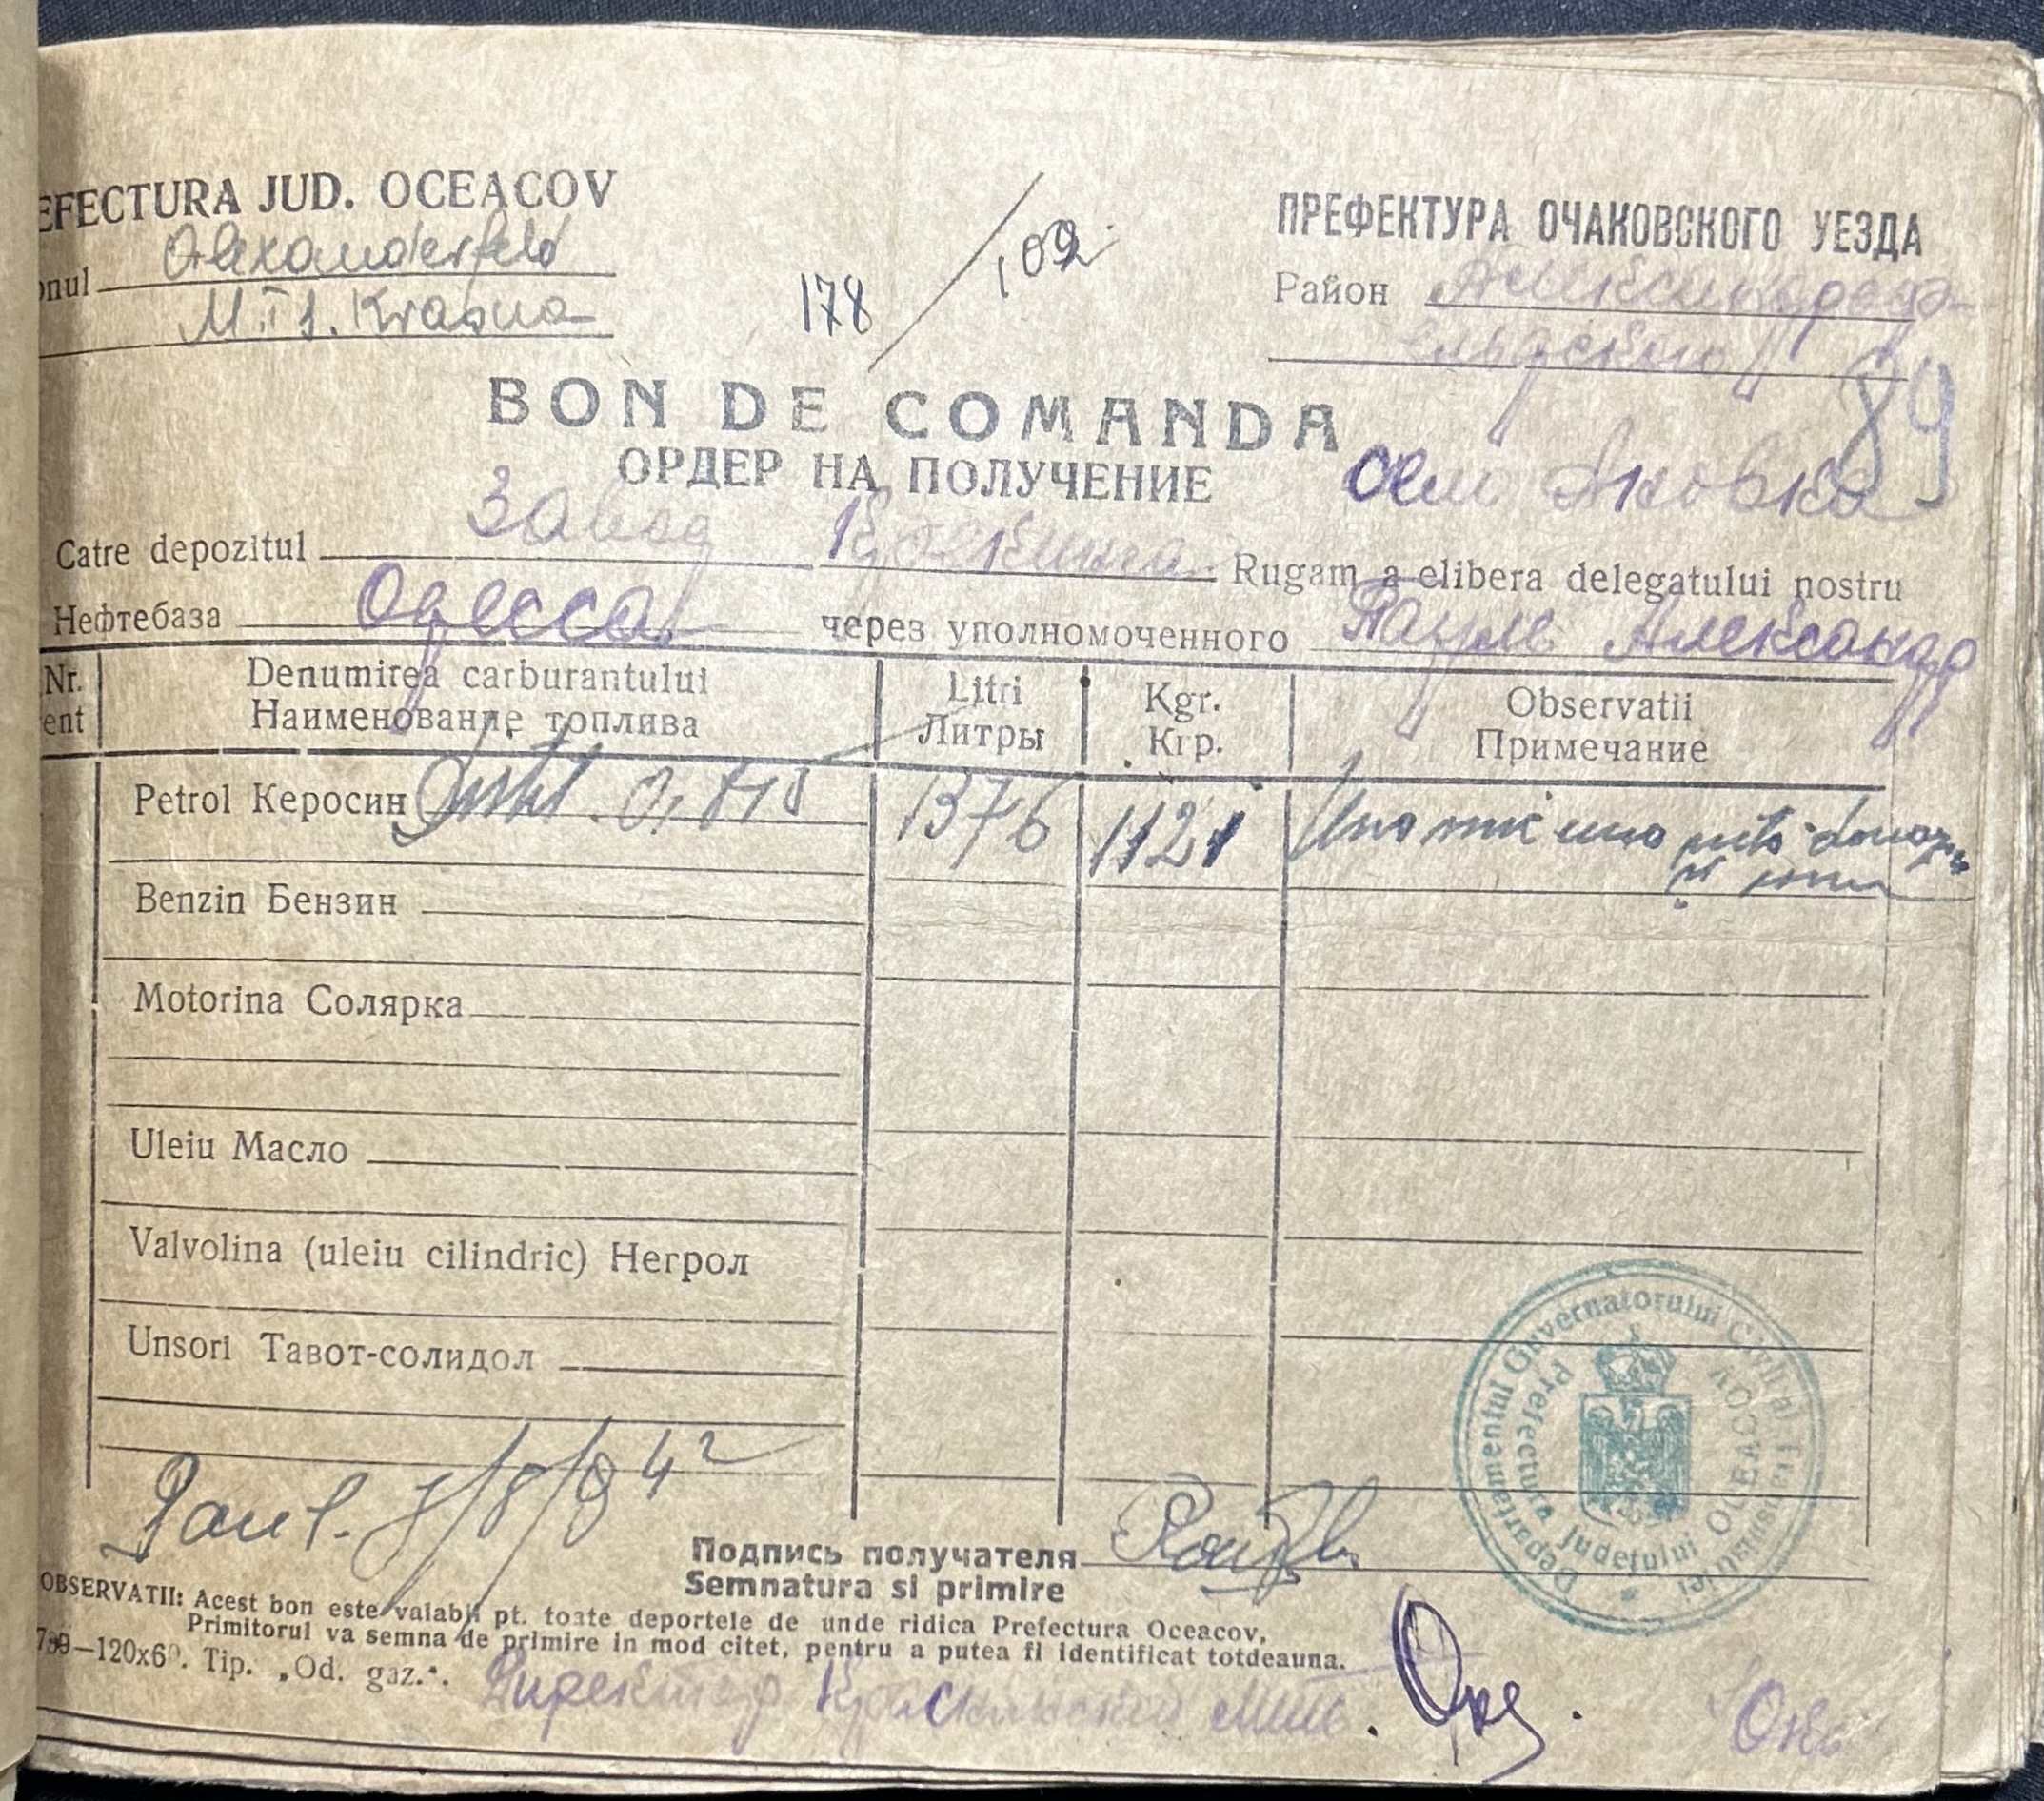 EFECTURA JUD. OCEACOV
onul Alexanderfeld
M.T.S. Krasna
178 / 102
ПРЕФЕКТУРА ОЧАКОВСКОГО УЕЗДА
Район Александерф-
ельдского
89
BON DE COMANDA
ОРДЕР НА ПОЛУЧЕНИЕ
село
Catre depozitul Завод Rugam a elibera delegatului nostru
Нефтебаза Одесса через уполномоченного Пауль Александр
Nr. Denumirea carburantului Litri Kgr. Observatii
ent Наименование топлива Литры Кгр. Примечание
Petrol Керосин 1376 1121 Una mie una suta douazeci si unu
Benzin Бензин
Motorina Солярка
Uleiu Масло
Valvolina (uleiu cilindric) Негрол
Unsori Тавот-солидол
Paul. 7/8/942
Подпись получателя
Semnatura si primire
OBSERVATII: Acest bon este valabil pt. toate deportele de unde ridica Prefectura Oceacov,
Primitorul va semna de primire in mod citet, pentru a putea fi identificat totdeauna.
789—120x60. Tip. „Od. gaz.“.
Директор Краснинской МТС.
Departamentul Guvernatorului Civil al Transnistriei
Prefectura Județului OCEACOV